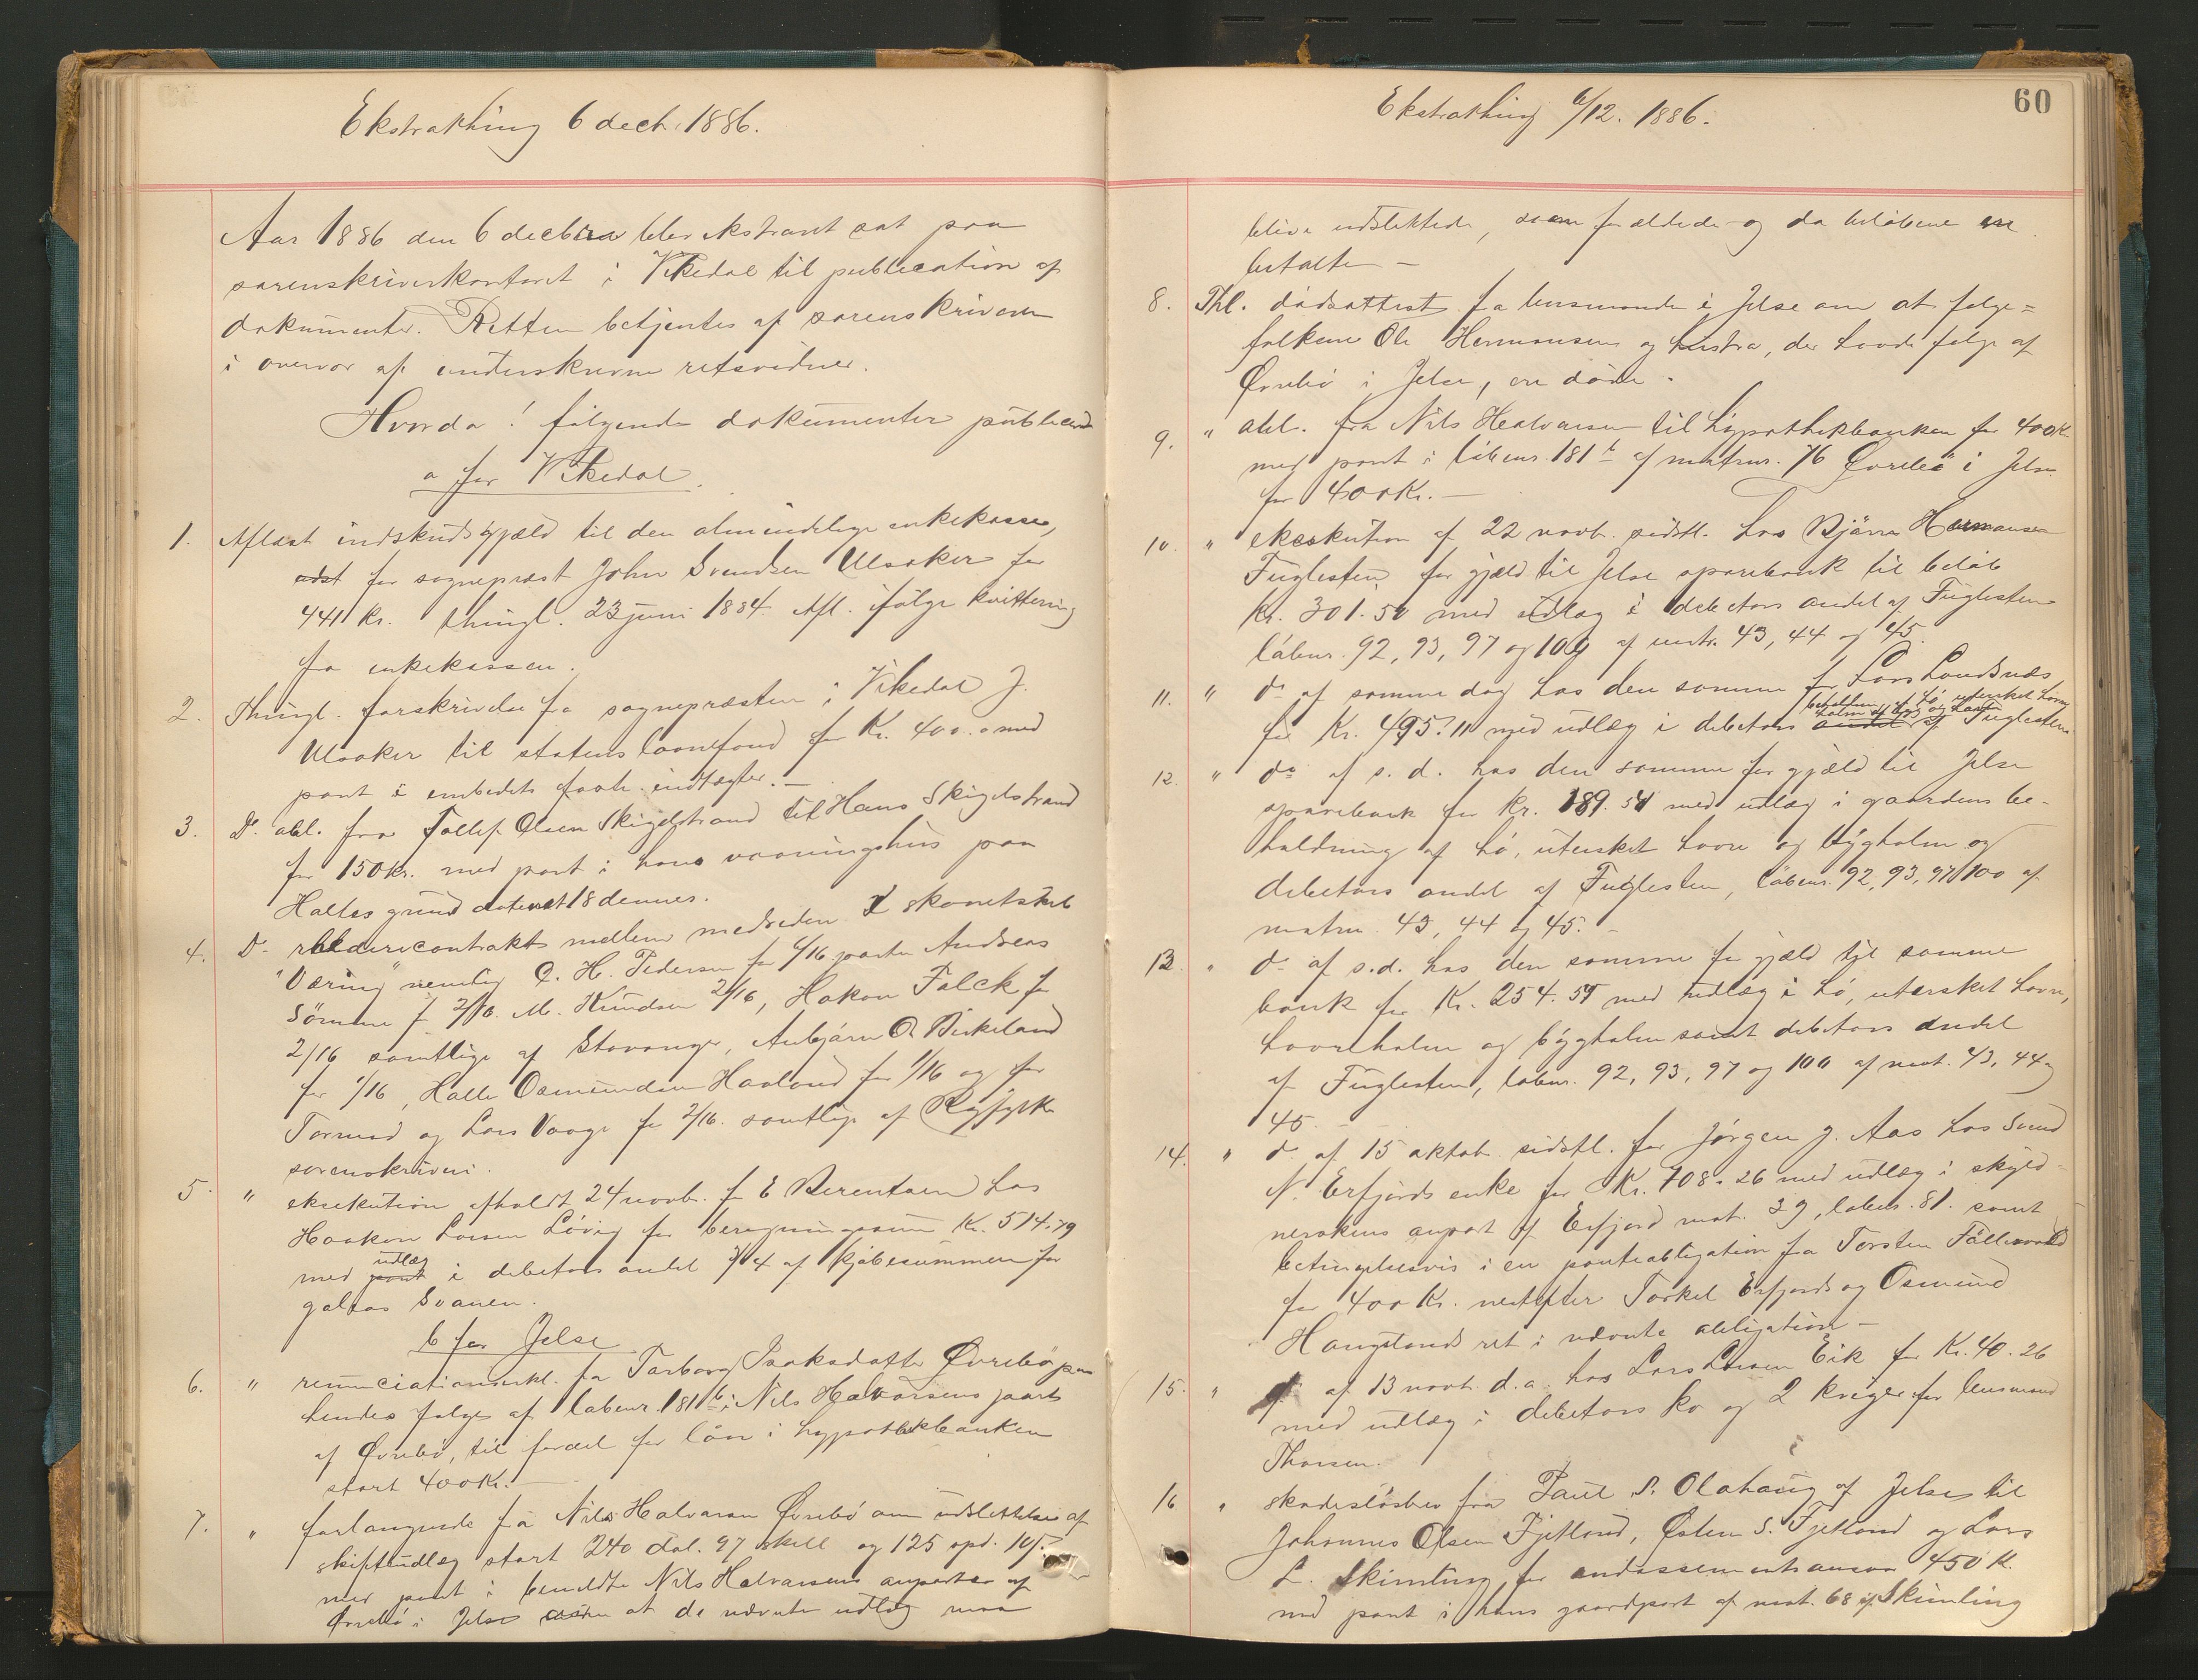 Ekstrathing 6 decb. 1886.
Aar 1886 den 6 decbra blev ekstraret sat paa
sorenskriverkontoret i Vikedal til publication af
dokumenter. Retten betjentes af sorenskriveren
i overvær af underskrevne retsvidner.
Hvorda! følgende dokumenter publicered
a for Vikedal.
1. Aflæst indskudsgjæld til den almindelige enkekasse,
udst for sognepræst John Svendsen Ulsaker for
441 kr. thingl. 23 juni 1884. Afl. ifølge kvittering
fra enkekassen.
2. Thingl. forskrivelse fra sognepræsten i Vikedal J.
Ulsaker til statens laanefond for Kr. 400.0 med
pant i embedets faste indtægter. —
3. D. obl. fra Tollef Olsen Skigelstrand til Hans Skigelstrand
for 150 Kr. med pant i hans vaaningshus paa
Halles grund dateret 18 dennes.
4. D. rhedericontrakt mellem medreder I skonnertskib
"Væring" nemlig O. H. Pedersen for 6/16 parter Andreas
Sömme f. 2/16. M. Knudsen 2/16, Hakon Falck for
2/16 samtlige af Stavanger, Anbjørn O. Birkeland
for 1/16, Halle Osmundsen Haaland for 1/16 og for
Tormod og Lars Vaage for 2/16. samtlige af Ryfylke
sorenskriveri.
5. " eksekution afholdt 24 novb. f E Berentsen hos
Haakon Larsen Lövig for beregningssum Kr. 514.79
med pant udlæg i debetors andel 1/4 af kjøbesummen for
galeas Svanen.
b for Jelse
6. " renunciationserkl. fra Torborg Isaksdatter Øvrebö paa
hendes følge af løbenr. 181 b i Nils Halvorsens part
af Øvrebö, til fordel for lån i hypothekbanken
stort 400 Kr. —
7. " forlangende fra Nils Halvorsen Øvrebö om udslettelse af
skifteudlæg stort 240 dal. 97 skill og 125 spd. 105.
med pant i bemeldte Nils Halvorsens anparter af
Øvrebö i Jelse at de nævnte udlæg maa
Ekstrathing 6/12. 1886.
60
blive udslettede, som forældede og da beløbene er
betalte —
8. Thl. dødsattest fra lensmanden i Jelse om at følge=
folkene Ole Hermansen og hustru, der havde følge af
Øvrebö i Jelse, ere døde.
9. " obl. fra Nils Halvorsen til hypothekbanken for 400 K
med pant i löbenr. 181 b af matrnr. 76 Øvrebö i Jelse
for 400 Kr. —
10. " eksekution af 22 novb. sidstl. hos Bjärne Hermansen
Fuglesten for gjæld til Jelse sparebank til belöb
Kr. 301.50 med udlæg i debetors andel af Fuglesten
löbnr. 92, 93, 97 og 100 af matr. 43, 44 og 45.
11. " do af samme dag hos den samme for Lars Landsnæs
for Kr. 495.11 med udlæg i debetors andel beholdning af hö, utersket havre halm af byg og havre af Fuglesten.
12. " do af s. d. hos den samme for gjæld til Jelse
sparebank for Kr. 189.54 med udlæg i gaardens be-
holdning af hö, utersket havre og bygholm og
debetors andel af Fuglesten, löbenr. 92, 93, 97, 100 af
matrnr. 43, 44 og 45. —
13. " do af s. d. hos den samme for gjæld til samme
bank for Kr. 254.59 med udlæg i hö, utersket havre,
havrehalm og byghalm samt debetors andel
af Fuglesten, løbenr. 92, 93, 97 og 100 af mat. 43, 44 og
45. —
14. " do af 15 oktob. sidstl. for Jörgen J. Aas hos Svend
N. Erfjords enke for Kr. 708.26 med udlæg i skyld-
nerskens anpart af Erfjord mat. 39, løbenr. 81. samt
betingelsesvis i en panteobligation fra Torsten
for 400 Kr. næstefter Torkel Erfjords og Osmund
Hauglands ret i nævnte obligation —
15. " do af 13 novb. d. a. hos Lars Larsen Eik for Kr. 40.26
med udlæg i debetors ko og 2 kviger for lensmand
Thorsen.
16 " skadeslösbrev fra Paul P. Olahaug af Jelse til
Johannes Olsen Fjetland, Østen S. Fjetland og Lars
L. Skimling for endossementsansvar 450 K.
med pant i hans gaardpart af mat. 68 af Skimling